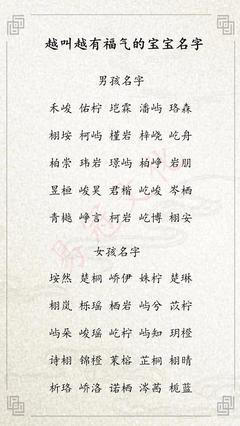 越叫越有福气的宝宝名字
男孩名字
禾峻 佑柠 垲霖 潘屿 珞森
栩垵 柯屿 槿岩 梓峣 屹舟
柏崇 玮岩 璟屿 柏峥 岩朋
昱桓 峻昊 君楷 屹峻 岑栖
青樾 峥言 柯岩 屹博 栩安
女孩名字
垵然 楚桐 峤伊 姝柠 楚琳
栩岚 栎瑶 栖岩 屿兮 苡柠
屿朵 峻瑶 屹柠 屿知 玥橙
诗栩 锦橙 茉榕 芷桐 栩晴
析珞 峤洛 诺栖 涔茜 栀蓝
易冠文化